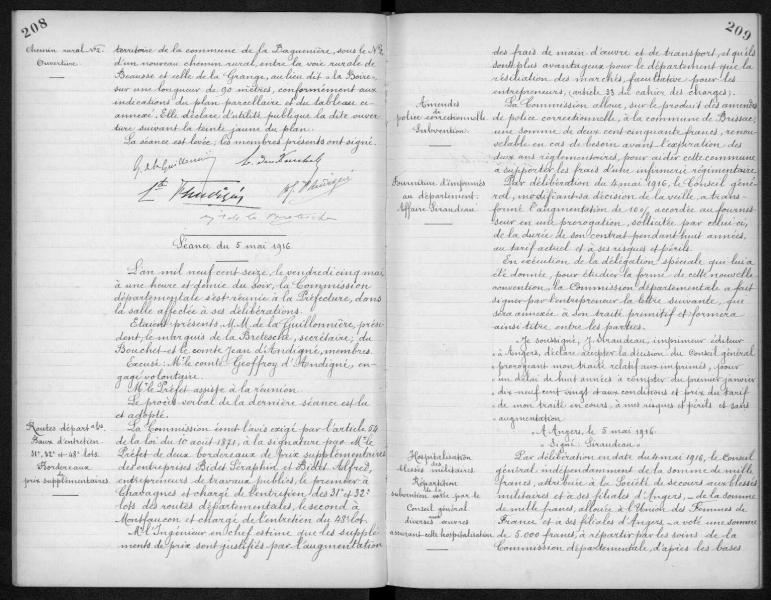 208
Chemin rural N°2.
Ouverture.
territoire de la commune de la Daguenière, sous le N°2
d'un nouveau chemin rural, entre la voie rurale de
Beausse et celle de la Grange, au lieu dit "la Boire",
sur une longueur de 90 mètres, conformément aux
indications du plan parcellaire et du tableau ci-
annexé. Elle déclare d'utilité publique la dite ouver-
ture suivant la teinte jaune du plan.
La séance est levée; les membres présents ont signé.
Séance du 5 mai 1916.
L'an mil neuf cent seize, le vendredi cinq mai,
à une heure et demie du soir, la Commission
départementale s'est réunie à la Préfecture, dans
la salle affectée à ses délibérations.
Etaient présents M.M. de la Guillonnière, prési-
dent, le marquis de la Bretesche, secrétaire; du
Bouchet et le comte Jean d'Andigné, membres.
Excusé: Mr le comte Geoffroy d'Andigné, en-
gagé volontaire.
Mr le Préfet assiste à la réunion.
Le procès-verbal de la dernière séance est lu
et adopté.
Routes départales.
Baux d'entretien.
31e, 32e et 48e lots.
Bordereaux
de
prix supplémentaires.
La Commission émet l'avis exigé par l'article 54
de la loi du 10 août 1871, à la signature par Mr le
Préfet de deux bordereaux de prix supplémentaires
des entreprises Bidet Séraphin et Bidet Alfred,
entrepreneurs de travaux publics, le premier à
Chavagnes et chargé de l'entretien des 31e et 32e
lots des routes départementales, le second à
Montfaucon et chargé de l'entretien du 48e lot.
Mr l'Ingénieur en chef estime que les supplé-
ments de prix sont justifiés par l'augmentation
209
des frais de main d'œuvre et de transport, et qu'ils
sont plus avantageux pour le département que la
résiliation des marchés, facultative pour les
entrepreneurs, (article 33 du cahier des charges).
Amendes
de
police correctionnelle.
Subvention.
La Commission alloue, sur le produit des amendes
de police correctionnelle, à la commune de Brissac,
une somme de deux cent cinquante francs, renou-
velable en cas de besoin avant l'expiration des
deux ans réglementaires, pour aider cette commune
à supporter les frais d'une infirmerie régimentaire.
Fourniture d'imprimés
au département.
Affaire Siraudeau.
Par délibération du 4 mai 1916, le Conseil géné-
ral, modifiant sa décision de la veille, a trans-
formé l'augmentation de 10% accordée au fournis-
seur en une prorogation, sollicitée par celui-ci,
de la durée de son contrat pendant huit années,
au tarif actuel et à ses risques et périls.
En exécution de la délégation spéciale qui lui a
été donnée, pour étudier la forme de cette nouvelle
convention, la Commission départementale a fait
signer par l'entrepreneur la lettre suivante, qui
sera annexée à son traité primitif et formera
ainsi titre entre les parties.
« Je soussigné, J. Siraudeau, imprimeur éditeur
« à Angers, déclare accepter la décision du Conseil général
« prorogeant mon traité relatif aux imprimés, pour
« un délai de huit années à compter du premier janvier
« dix neuf cent vingt et aux conditions et prix du tarif
« de mon traité en cours, à mes risques et périls et sans
« augmentation.
« A Angers, le 5 mai 1916.
« Signé: Siraudeau. »
Hospitalisation
de
blessés militaires.
Répartition
de la
subvention votée par le
Conseil général
aux
diverses œuvres
assurant cette hospitalisation
Par délibération en date du 4 mai 1916, le Conseil
général, indépendamment de la somme de mille
francs, attribuée à la Société de secours aux blessés
militaires et à ses filiales d'Angers, _ de la somme
de mille francs, allouée à l'Union des Femmes de
France et à ses filiales d'Angers, _ a voté une somme
de 5.000 francs, à répartir par les soins de la
Commission départementale, d'après les bases